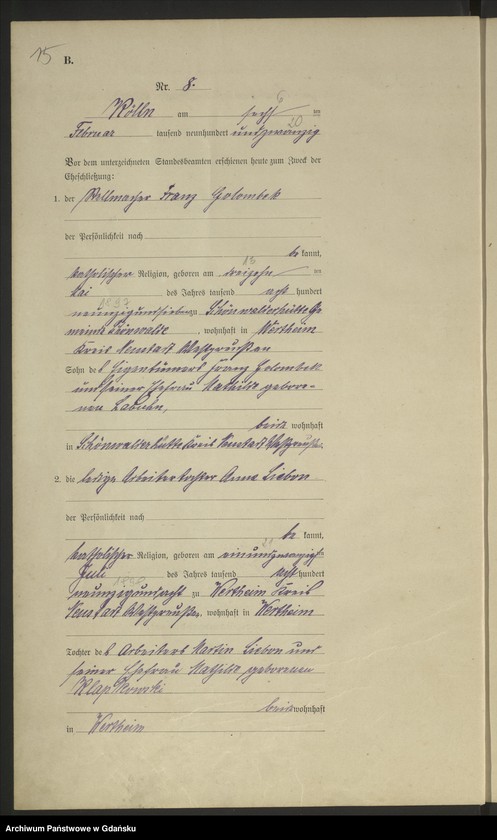 15
B.
Nr. 8.
Kölln am sechs 6 ten
Februar tausend neunhundert undzwanzig 20
Vor dem unterzeichneten Standesbeamten erschienen heute zum Zweck der
Eheschließung:
1. der Stellmacher Franz Golombek
der Persönlichkeit nach
be kannt,
katholischer Religion, geboren am dreizehn 13 ten
Mai des Jahres tausend acht hundert
neunzigundsieben 1897 zu Schönwalderhütte Ge
meinde Schönwalde, wohnhaft in Wertheim
Kreis Neustadt Westpreußen
Sohn des Eigentümers Franz Golombek
und seiner Ehefrau Mathilde gebore-
nen Labuda,
beide wohnhaft
in Schönwalderhütte Kreis Neustadt Westpreußen.
2. die ledige Arbeitertochter Anna Liebon
der Persönlichkeit nach
be kannt,
katholischer Religion, geboren am einundzwanzigsten 21
Juli des Jahres tausend acht hundert
neunzigundacht zu Wertheim Kreis
Neustadt Westpreußen, wohnhaft in Wertheim
Tochter des Arbeiters Martin Liebon und
seiner Ehefrau Mathilde geborenen
Klapkowski
beide wohnhaft
in Wertheim
Archiwum Państwowe w Gdańsku